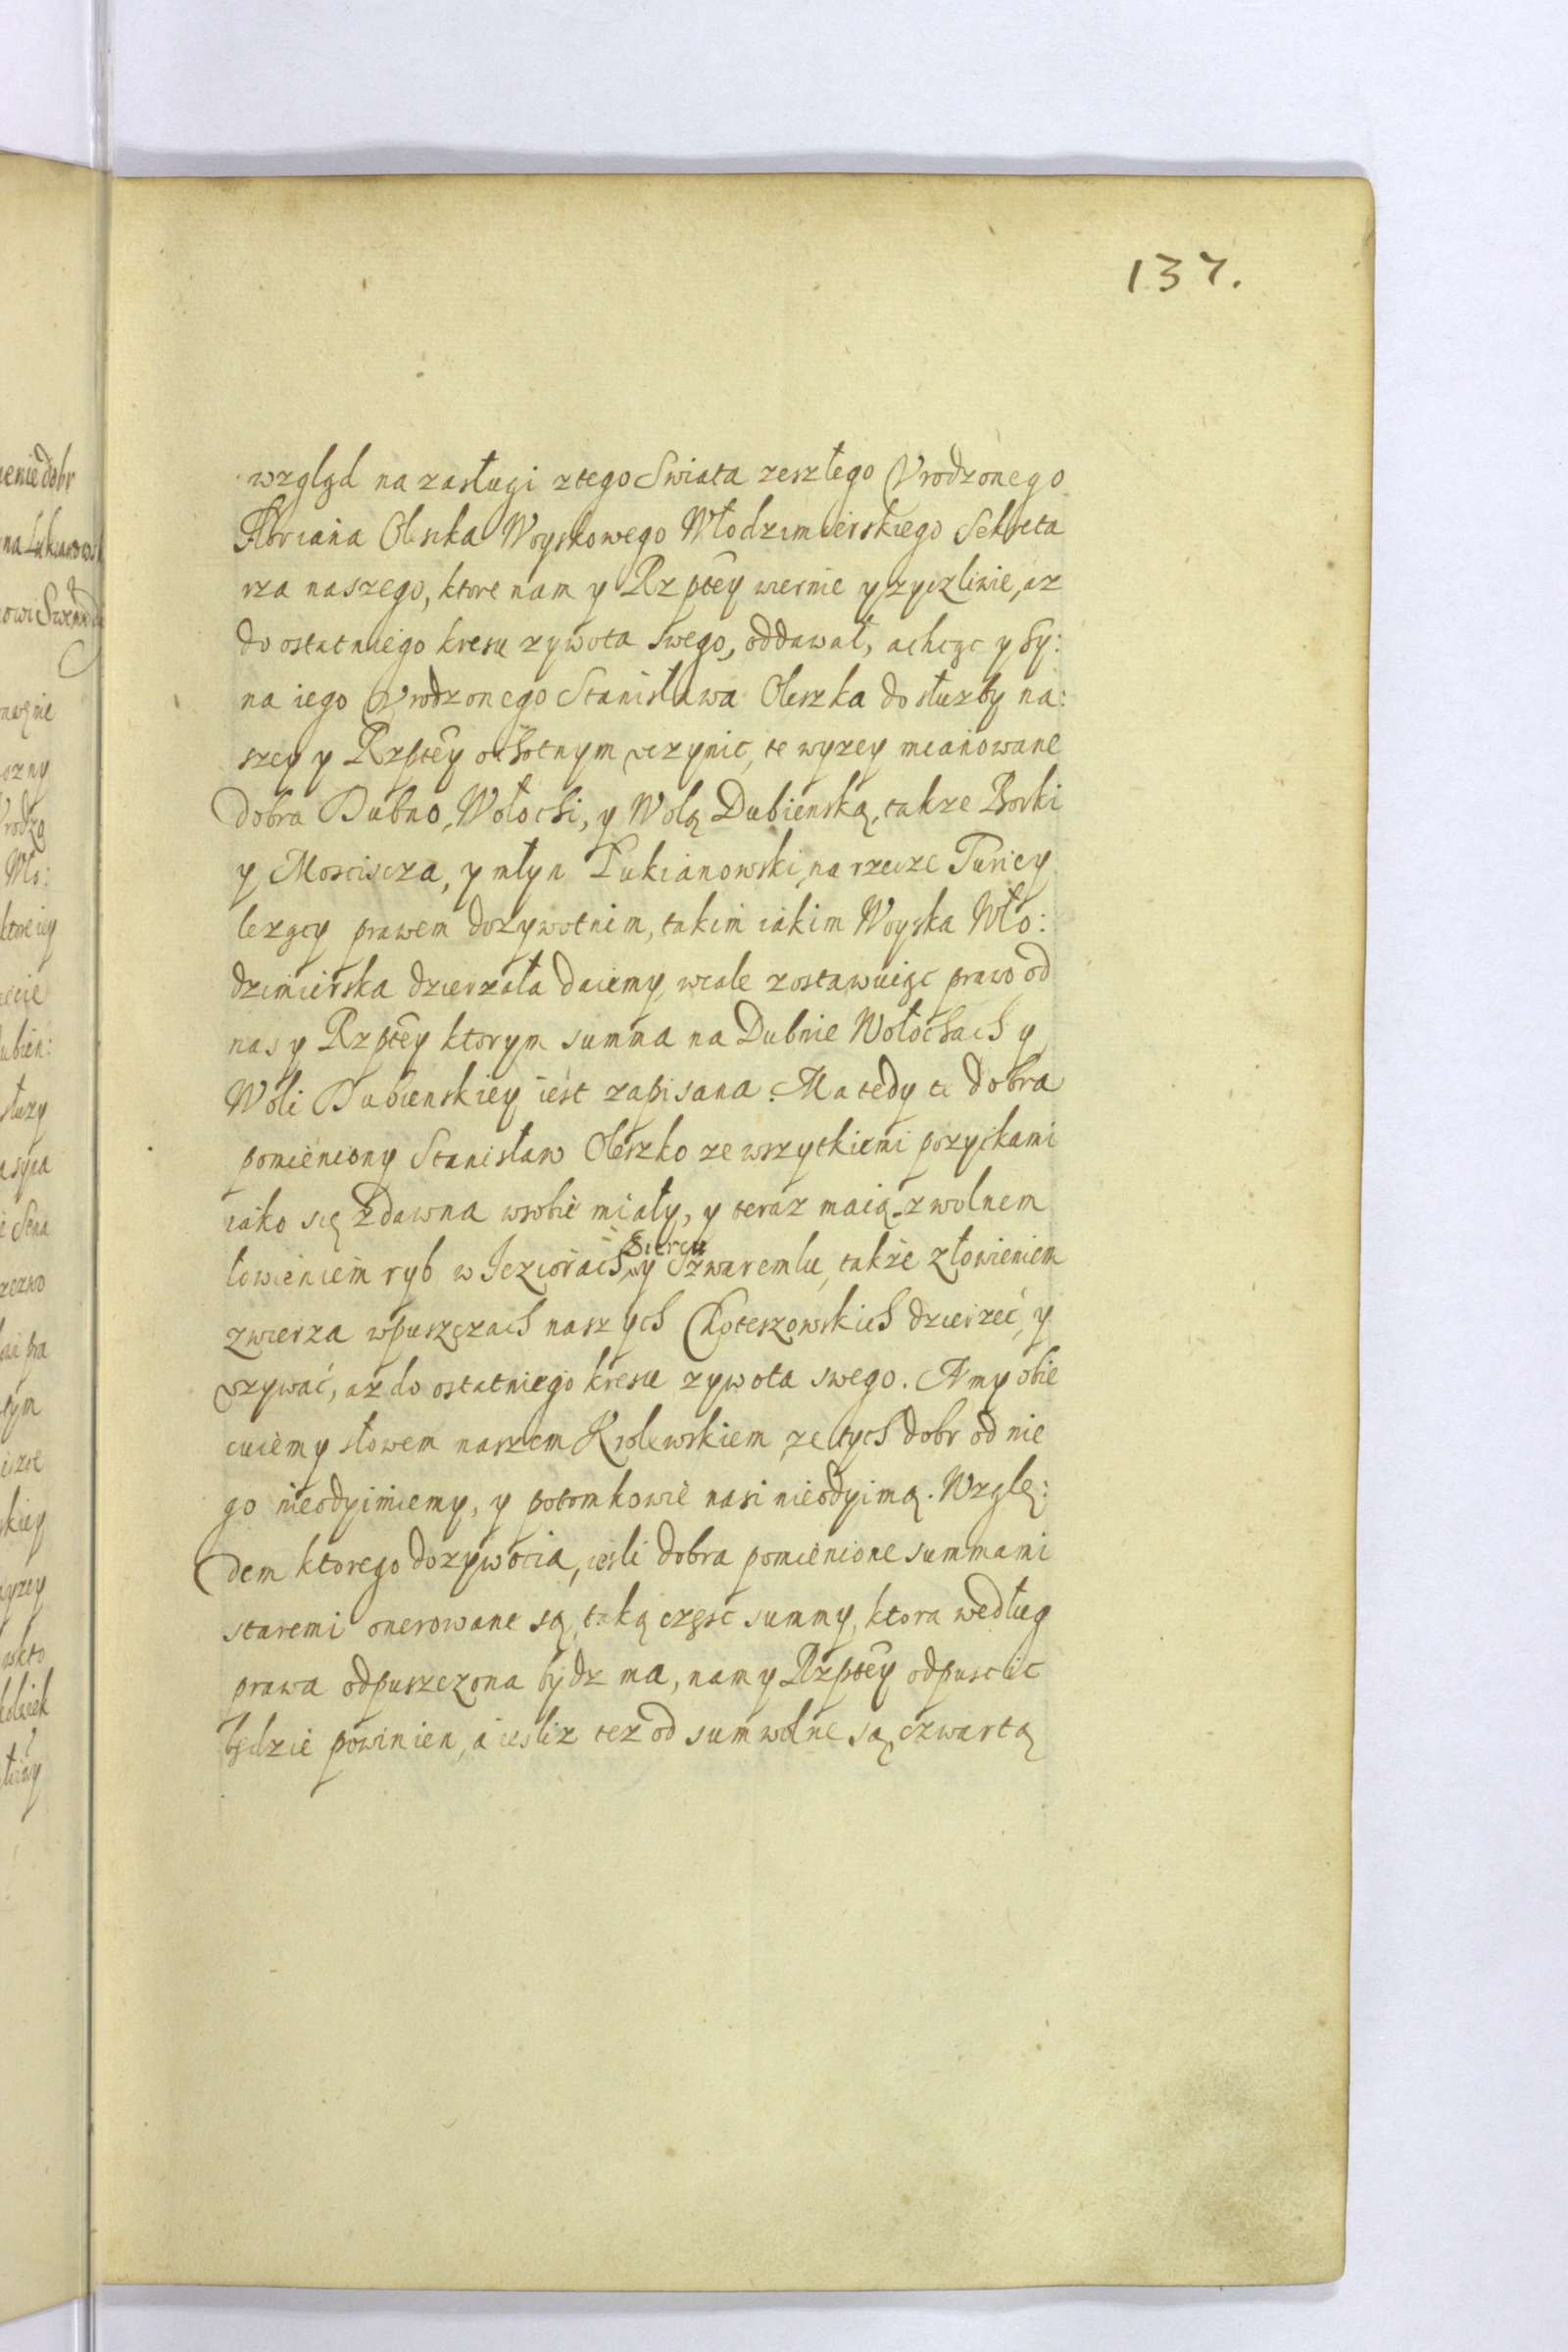 137.
wzgląd na zasługi ztego Swiata zeszłego Vrodzonego
Floriana Oleska Woyskowego Włodzimierskiego Sekreta
rza naszego, ktore nam y Rzptey wiernie y zyczliwie, az
do ostatniego kresu zywota swego, oddawał, a chcąc y Sy:
na iego Vrodzonego Stanisława Oleszka do słuzby na:
szey y Rzptey ochotnym vczynic, te wyzey mianowane
dobra Dubno, Wołochi, y Wolą Dubienską, takze Borki
y Mosciscza, y młyn Łukianowski, na rzecze Turiey
lezący prawem dozywotnim, takim iakim Woyska Wło:
dzimierska dzierzała daiemy, wcale zostawuiąc prawo od
nas y Rzptey ktorym summa na Dubnie Wołochach y
Woli Dubienskiey iest zapisana. Ma tedy te dobra
pomieniony Stanisław Oleszko ze wszytkiemi pozytkami
iako się zdawna wsobie miały, y teraz maią z wolnem
łowieniem ryb w Jeziorach Siercu y Szwaremlu, także złowieniem
zwierza wpuszczach naszych Choteszowskich dzierzeć, y
vzywać, az do ostatniego kresu zywota swego. A my obie
cuiemy słowem naszem Krolewskiem ze tych dobr od nie
go nieodyimiemy, y potomkowie nasi nieodyimą. Wzglę:
dem ktorego dozywocia, iesli dobra pomienione summami
staremi onerowane są, taką częsc summy, ktora według
prawa odpuszczona bydz ma, nam y Rzptey odpuscic
będzie powinien, a ieslix tez od sum wolne są, czwartą